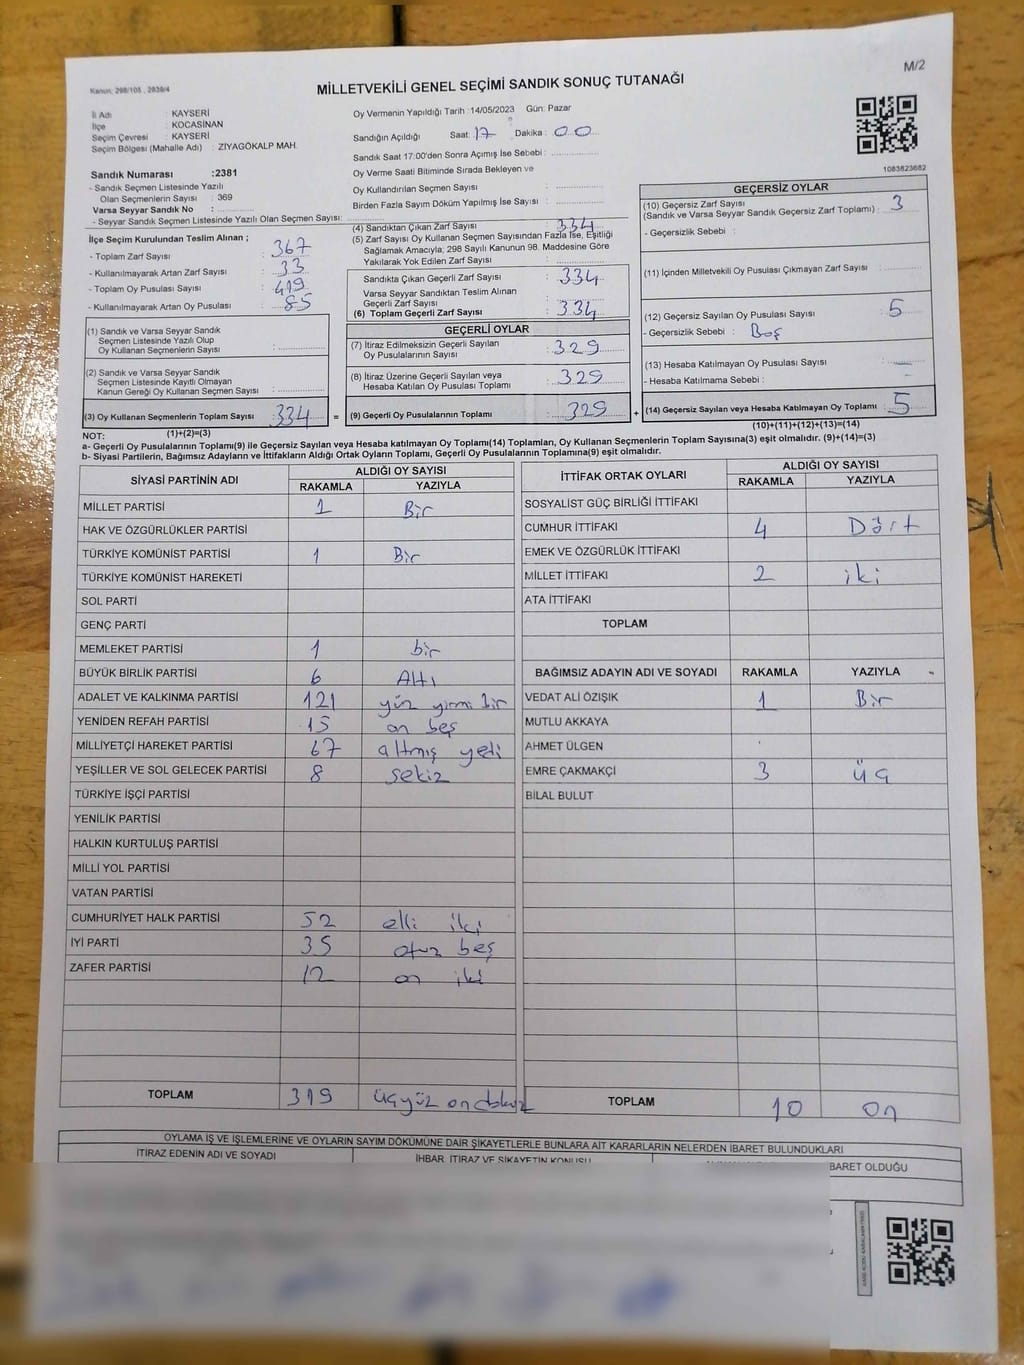 Kanun, 298/105 , 2839/4
M/2
MİLLETVEKİLİ GENEL SEÇİMİ SANDIK SONUÇ TUTANAĞI
İl Adı : KAYSERİ
İlçe : KOCASİNAN
Seçim Çevresi : KAYSERİ
Seçim Bölgesi (Mahalle Adı) : ZİYAGÖKALP MAH.
Oy Vermenin Yapıldığı Tarih :14/05/2023 Gün: Pazar
Sandığın Açıldığı Saat: 17 Dakika : 00
Sandık Saat 17:00'den Sonra Açımış İse Sebebi :
Oy Verme Saati Bitiminde Sırada Bekleyen ve
Oy Kullandırılan Seçmen Sayısı :
Birden Fazla Sayım Döküm Yapılmış İse Sayısı :
1083823682
Sandık Numarası :2381
- Sandık Seçmen Listesinde Yazılı
Olan Seçmenlerin Sayısı : 369
Varsa Seyyar Sandık No :
- Seyyar Sandık Seçmen Listesinde Yazılı Olan Seçmen Sayısı:
İlçe Seçim Kurulundan Teslim Alınan ;
- Toplam Zarf Sayısı : 367
- Kullanılmayarak Artan Zarf Sayısı : 33
- Toplam Oy Pusulası Sayısı : 419
- Kullanılmayarak Artan Oy Pusulası : 85
(1) Sandık ve Varsa Seyyar Sandık
Seçmen Listesinde Yazılı Olup
Oy Kullanan Seçmenlerin Sayısı :
(2) Sandık ve Varsa Seyyar Sandık
Seçmen Listesinde Kayıtlı Olmayan
Kanun Gereği Oy Kullanan Seçmen Sayısı :
(3) Oy Kullanan Seçmenlerin Toplam Sayısı : 334 =
(1)+(2)=(3)
(4) Sandıktan Çıkan Zarf Sayısı : 334
(5) Zarf Sayısı Oy Kullanan Seçmen Sayısından Fazla İse, Eşitliği
Sağlamak Amacıyla; 298 Sayılı Kanunun 98. Maddesine Göre
Yakılarak Yok Edilen Zarf Sayısı :
Sandıkta Çıkan Geçerli Zarf Sayısı : 334
Varsa Seyyar Sandıktan Teslim Alınan
Geçerli Zarf Sayısı :
(6) Toplam Geçerli Zarf Sayısı : 334
GEÇERLİ OYLAR
(7) İtiraz Edilmeksizin Geçerli Sayılan
Oy Pusulalarının Sayısı : 329
(8) İtiraz Üzerine Geçerli Sayılan veya
Hesaba Katılan Oy Pusulası Toplamı : 329
(9) Geçerli Oy Pusulalarının Toplamı : 329 +
GEÇERSİZ OYLAR
(10) Geçersiz Zarf Sayısı
(Sandık ve Varsa Seyyar Sandık Geçersiz Zarf Toplamı) : 3
- Geçersizlik Sebebi :
(11) İçinden Milletvekili Oy Pusulası Çıkmayan Zarf Sayısı :
(12) Geçersiz Sayılan Oy Pusulası Sayısı : 5
- Geçersizlik Sebebi : Boş
(13) Hesaba Katılmayan Oy Pusulası Sayısı : —
- Hesaba Katılmama Sebebi :
(14) Geçersiz Sayılan veya Hesaba Katılmayan Oy Toplamı : 5
(10)+(11)+(12)+(13)=(14)
NOT:
a- Geçerli Oy Pusulalarının Toplamı(9) ile Geçersiz Sayılan veya Hesaba katılmayan Oy Toplamı(14) Toplamları, Oy Kullanan Seçmenlerin Toplam Sayısına(3) eşit olmalıdır. (9)+(14)=(3)
b- Siyasi Partilerin, Bağımsız Adayların ve İttifakların Aldığı Ortak Oyların Toplamı, Geçerli Oy Pusulalarının Toplamına(9) eşit olmalıdır.
SİYASİ PARTİNİN ADI ALDIĞI OY SAYISI
RAKAMLA YAZIYLA
MİLLET PARTİSİ 1 Bir
HAK VE ÖZGÜRLÜKLER PARTİSİ
TÜRKİYE KOMÜNİST PARTİSİ 1 Bir
TÜRKİYE KOMÜNİST HAREKETİ
SOL PARTİ
GENÇ PARTİ
MEMLEKET PARTİSİ 1 bir
BÜYÜK BİRLİK PARTİSİ 6 Altı
ADALET VE KALKINMA PARTİSİ 121 yüz yirmi bir
YENİDEN REFAH PARTİSİ 15 on beş
MİLLİYETÇİ HAREKET PARTİSİ 67 altmış yedi
YEŞİLLER VE SOL GELECEK PARTİSİ 8 sekiz
TÜRKİYE İŞÇİ PARTİSİ
YENİLİK PARTİSİ
HALKIN KURTULUŞ PARTİSİ
MİLLİ YOL PARTİSİ
VATAN PARTİSİ
CUMHURİYET HALK PARTİSİ 52 elli iki
İYİ PARTİ 35 otuz beş
ZAFER PARTİSİ 12 on iki
TOPLAM 319 üçyüz ondokuz
İTTİFAK ORTAK OYLARI ALDIĞI OY SAYISI
RAKAMLA YAZIYLA
SOSYALİST GÜÇ BİRLİĞİ İTTİFAKI
CUMHUR İTTİFAKI 4 Dört
EMEK VE ÖZGÜRLÜK İTTİFAKI
MİLLET İTTİFAKI 2 iki
ATA İTTİFAKI
TOPLAM
BAĞIMSIZ ADAYIN ADI VE SOYADI RAKAMLA YAZIYLA
VEDAT ALİ ÖZIŞIK 1 Bir
MUTLU AKKAYA
AHMET ÜLGEN
EMRE ÇAKMAKÇİ 3 üç
BİLAL BULUT
TOPLAM 10 on
OYLAMA İŞ VE İŞLEMLERİNE VE OYLARIN SAYIM DÖKÜMÜNE DAİR ŞİKAYETLERLE BUNLARA AİT KARARLARIN NELERDEN İBARET BULUNDUKLARI
İTİRAZ EDENİN ADI VE SOYADI İHBAR, İTİRAZ VE ŞİKAYETİN KONUSU BARET OLDUĞU